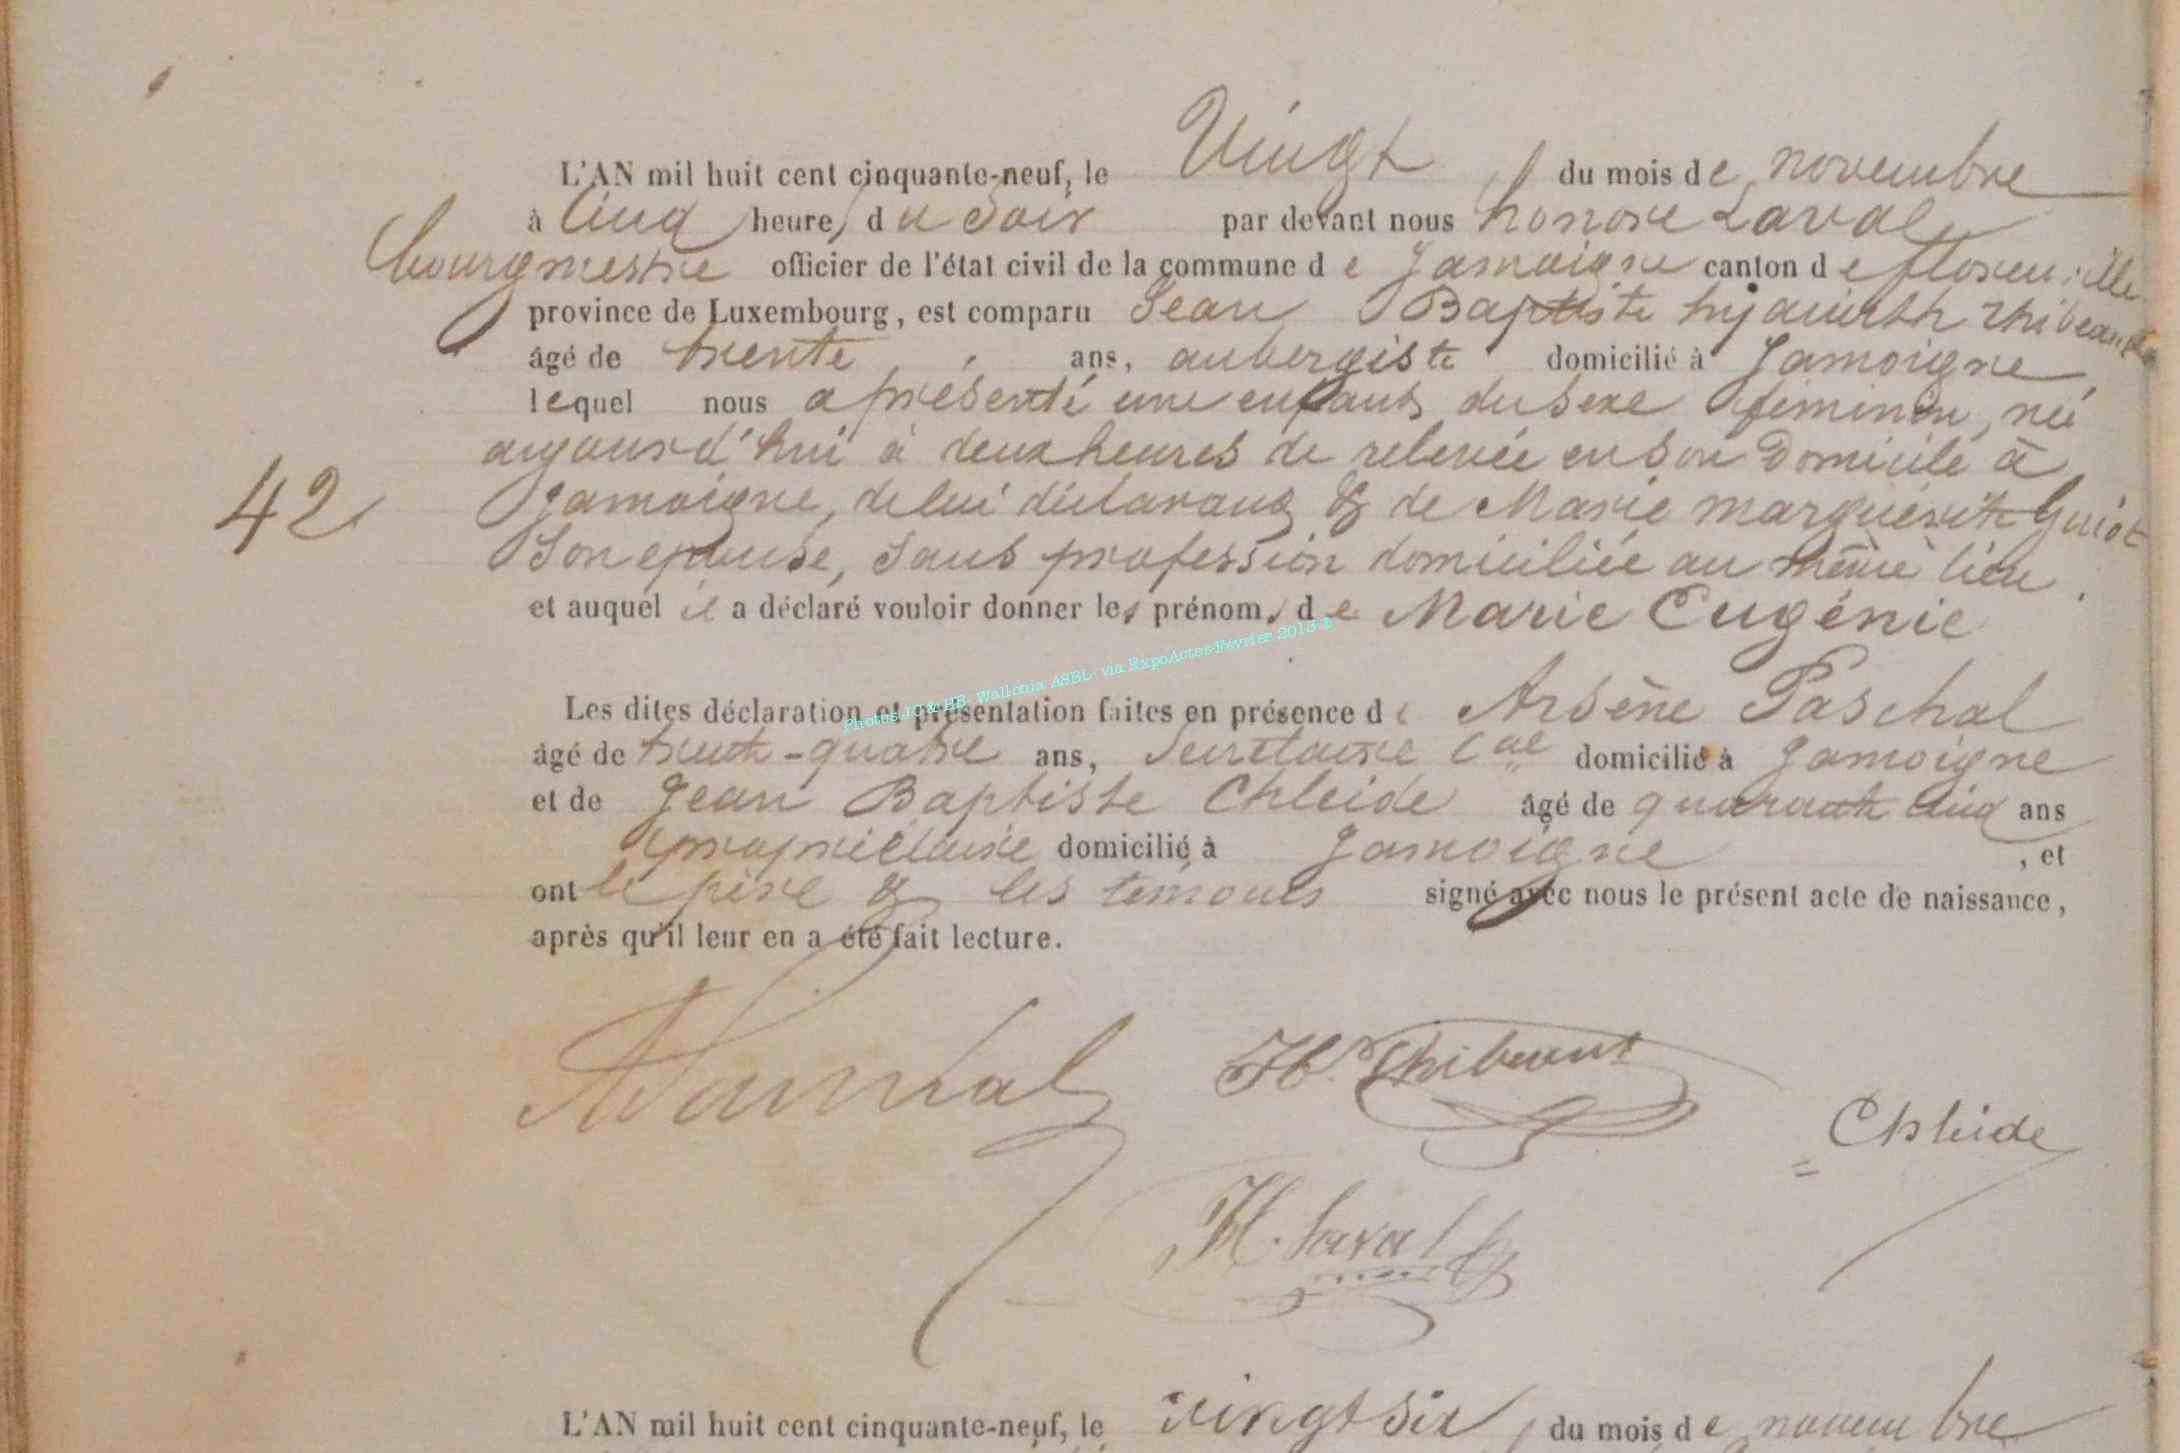 L'AN mil huit cent cinquante-neuf, le Vingt du mois de novembre
à Cinq heures du Soir par devant nous honoré Laval
bourgmestre officier de l'état civil de la commune de Jamoigne canton de florenville
province de Luxembourg, est comparu Jean Baptiste hyacinth thibeaux
âgé de trente ans, aubergiste domicilié à Jamoigne,
lequel nous a présenté une enfant du sexe féminin, née
aujourd'hui à deux heures de relevée en son Domicile à
42
Jamoigne, de lui déclarant & de Marie marguerite Guiot
Son epouse, Sans profession domiciliée au même lieu.
et auquel il a déclaré vouloir donner les prénoms de Marie Eugénie
Photos JC & HB Wallonia ASBL via ExpoActes-Février 2013
Les dites déclaration et présentation faites en présence de Arsène Paschal
âgé de trente-quatre ans, Secretaire Cal domicilié à Jamoigne
et de Jean Baptiste Chleide âgé de quarante cinq ans
propriétaire domicilié à Jamoigne, et
ont le père & les témoins signé avec nous le présent acte de naissance,
après qu'il leur en a été fait lecture.
Thibeaux
Chleide
H. Laval
L'AN mil huit cent cinquante-neuf, le vingt six du mois de novembre